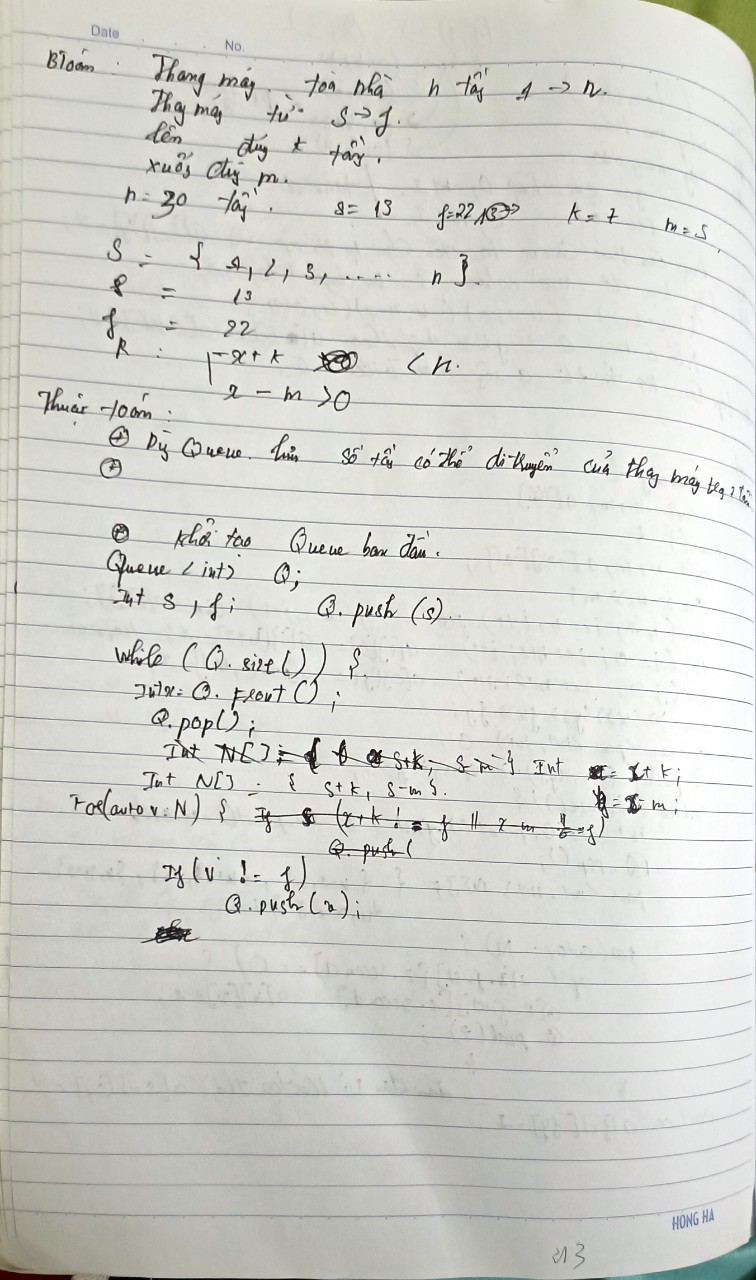 Date No.
Btoán: Thang máy toà nhà n tầg 1 → n.
Thg máy từ s → f.
lên đúg k tầg.
xuốg đúg m.
n = 30 tầg. s = 13 f = 22 k = 7 m = 5
S = { 1, 2, 3, ..... n }.
s = 13
f = 22
R : x + k < n.
x - m > 0
Thuật toán:
⊕ Dùg Queue số tầg có thể di chuyển của thag máy
⊕
⊕ Khởi tạo Queue ban đầu.
Queue <int> Q;
Int s, f; Q. push (s).
while (Q. size()) {
Int x = Q. front ();
Q. pop();
Int N[] = { s+k, s-m } Int = x + k;
Int N[] = { s+k, s-m }. y = x - m;
For(auto v: N) { If (x+k != f || x-m != f)
Q. push (
If (v != f)
Q. push (x);
HONG HA
213